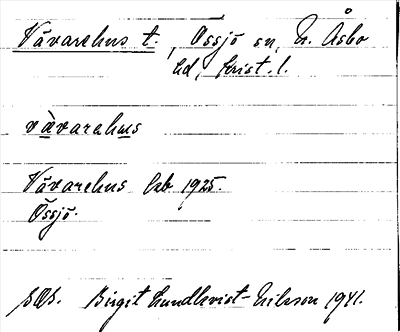 Vävarehus t., Össjö sn, N. Åsbo
hd, Krist. l.
vàvarehus
Vävarehus Jab 1925.
Össjö.
Birgit Lundkvist-Eriksson 1941.